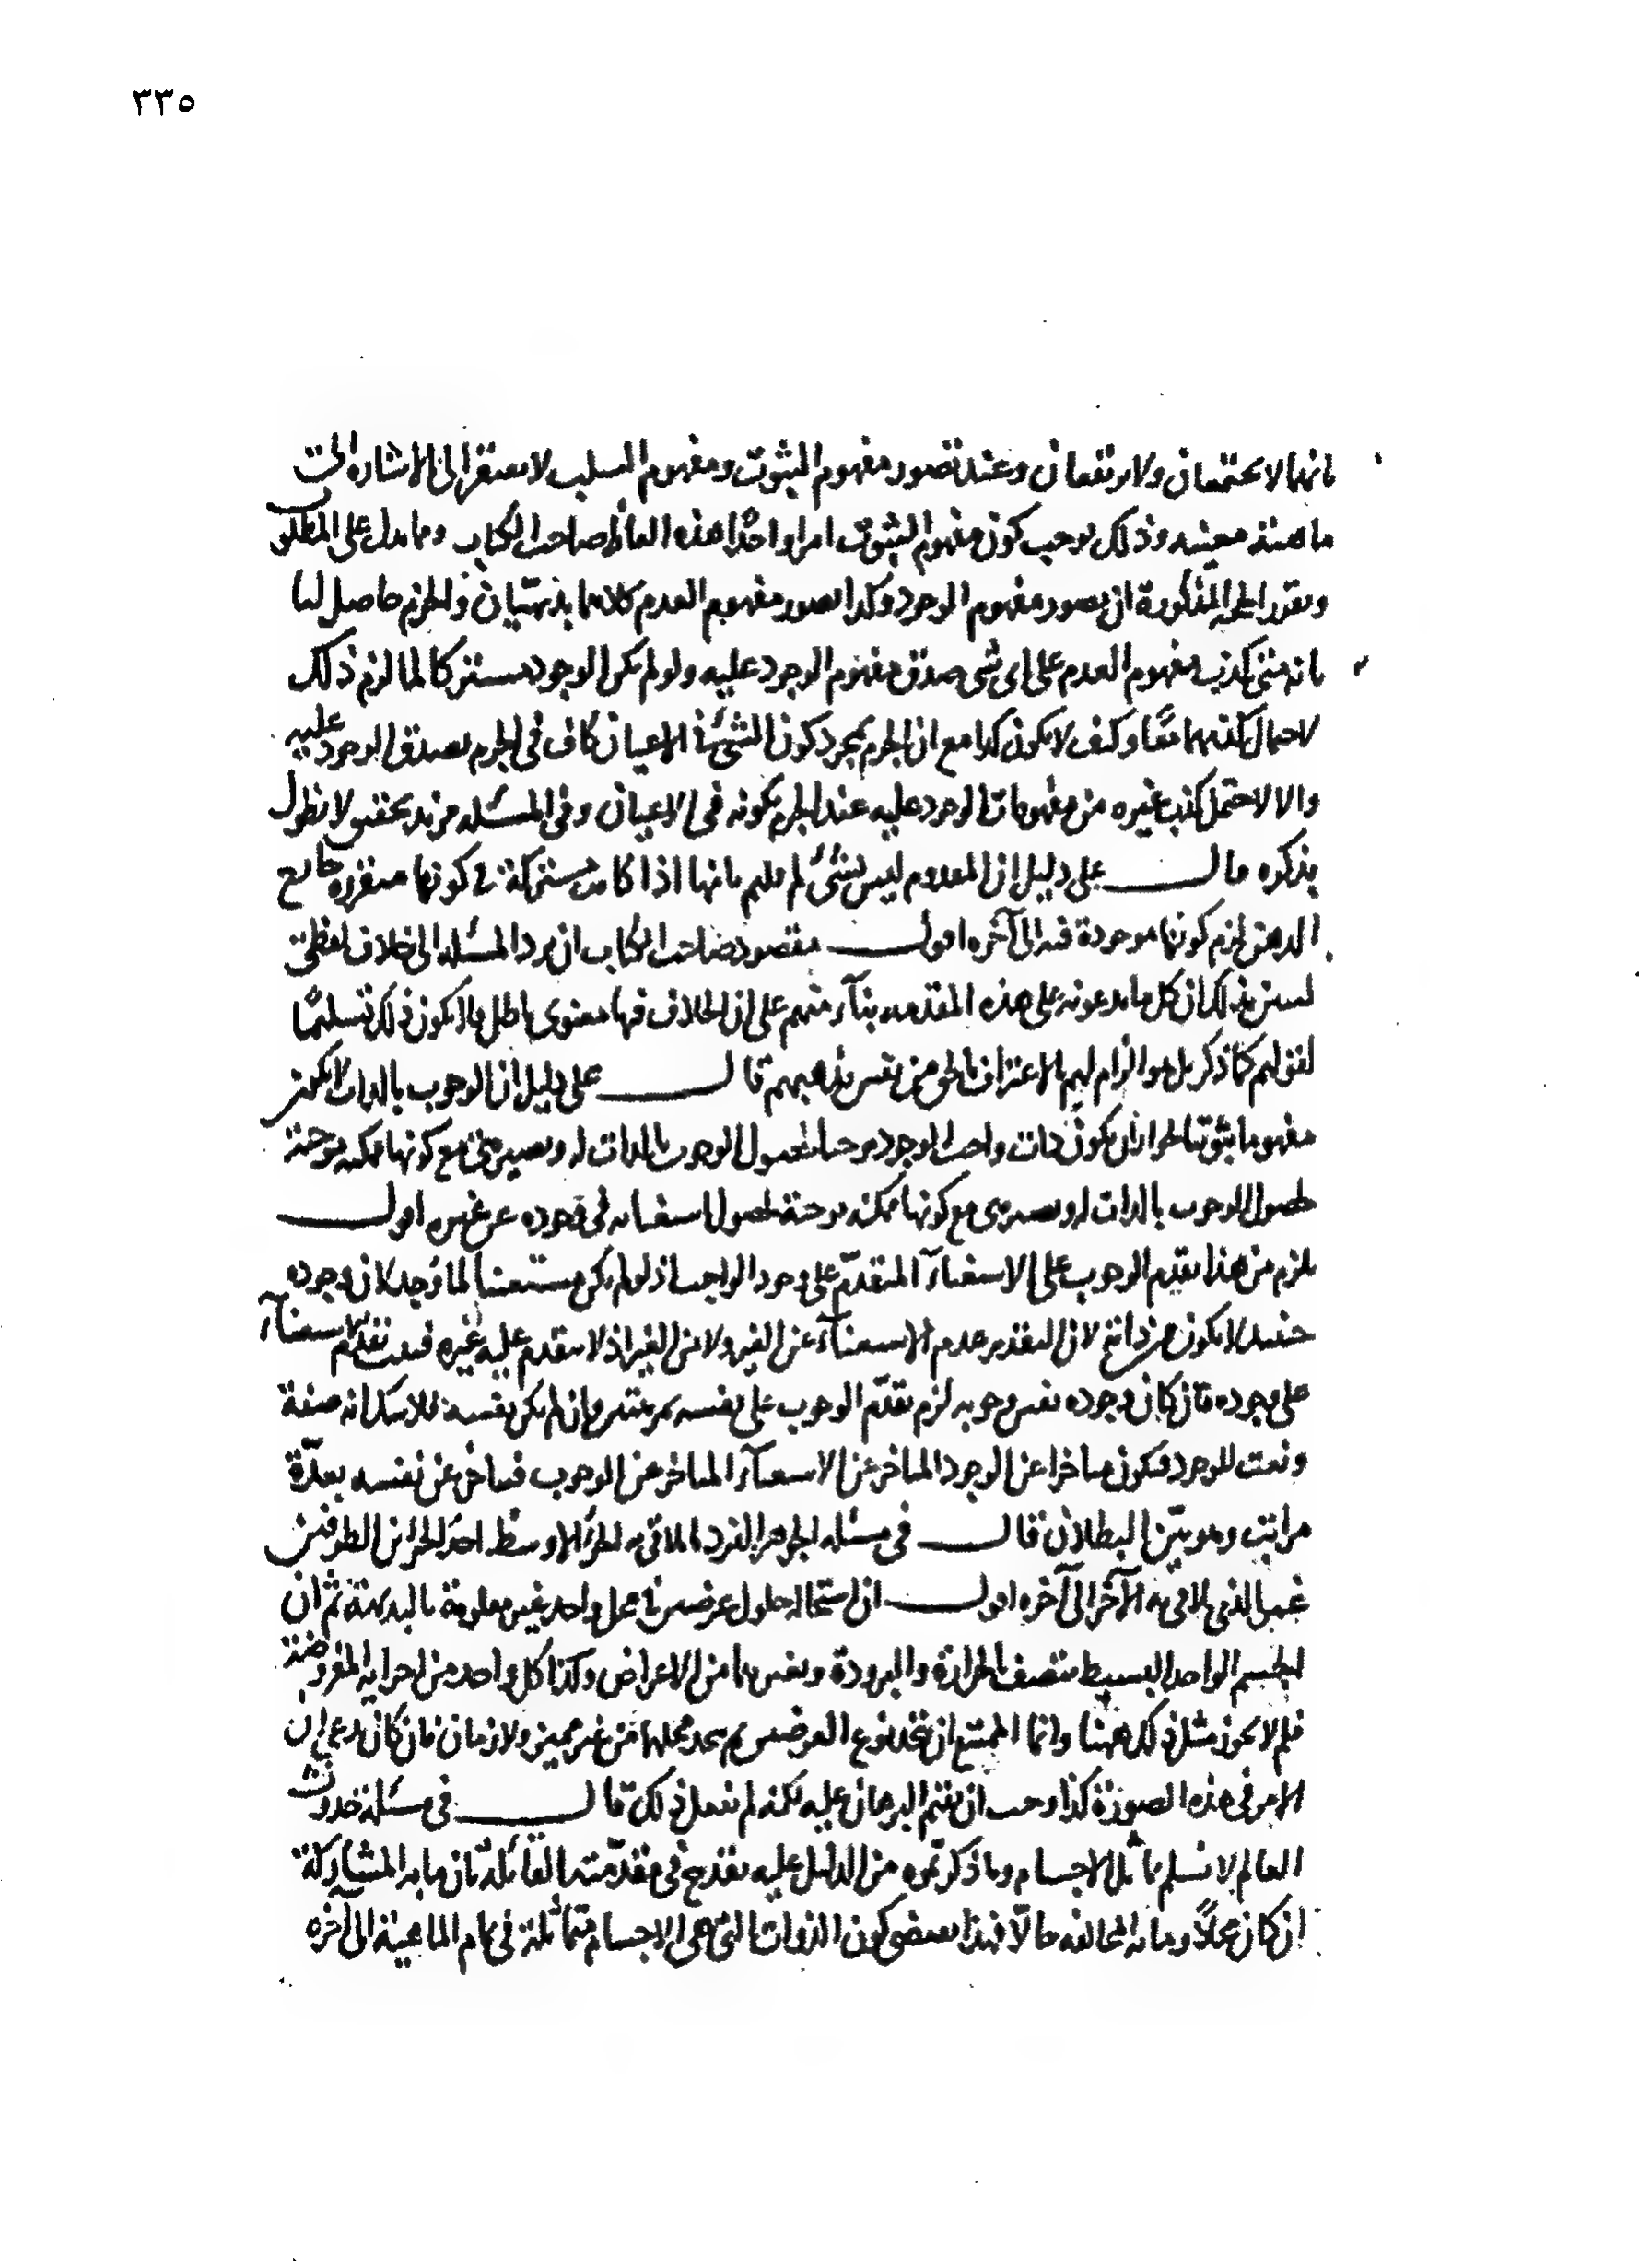 ٣٣٥
بانهما لا يجتمعان ولا يرتفعان وعند تصور مفهوم الثبوت ومفهوم السلب لا يفتقر الى الاشارة الى
ماهية معينة وذلك يوجب كون مفهوم الثبوت امرا واحدا هذه الفاظ صاحب الكتاب ومما يدل على المطلوب
ويقرر الحجة المذكورة ان تصور مفهوم الوجود وكذا تصور مفهوم العدم كلاهما بديهيان والجزم حاصل لنا
بانه متى كذب مفهوم العدم على اى شى صدق مفهوم الوجود عليه ولو لم يكن الوجود مشتركا لما لزم ذلك
لاحتمال كذبهما معًا وكيف لا يكون كذا مع ان الجزم بمجرد كون الشئ فى الاعيان كاف فى الجزم بصدق الوجود عليه
والا لاحتمل كذب غيره من مفهومات الوجود عليه عند الجزم بكونه فى الاعيان وفى المسئله مزيد تحقيق لا نطول
بذكره قال على دليل ان المعدوم ليس بشئ لم قلتم بانها اذا كانت مشتركة فى كونها متقررة خارج
الذهن لزم كونها موجودة فيه الى آخره اقول مقصود صاحب الكتاب ان يرد المسئله الى خلاف لفظى
ليبين بذلك ان كل ما يدعونه على هذه المقدمه بنآء منهم على ان الخلاف فيها معنوى باطل فلا يكون ذلك تسليمًا
لقولهم كما ذكر بل هو الزام لهم بالاعتراف بالحق من نفس مذهبهم قال على دليل ان الوجوب بالذات لا يكون
مفهوما ثبوتيا لجواز ان يكون ذات واجب الوجود موجبا لحصول الوجوب بالذات له ويصير هى مع كونها ممكنه موجبة
لحصول الوجوب بالذات له ويصير هى مع كونها ممكنه موجبة لحصول استغنائه فى وجوده عن غيره اقول
يلزم من هذا تقدم الوجوب على الاستغنآء المتقدّم على وجود الواجب اذ لو لم يكن مستغنيا لما وُجد لان وجوده
حينئذ لا يكون من ذاته لان التقدير عدم الاستغنآء عن الغير ولا من الغير اذ لا يتقدم عليه غيره فيثبت تقدّم الاستغنآء
على وجوده فان كان وجوده نفس وجوبه لزم تقدّم الوجوب على نفسه بمرتبتين وان لم يكن نفسه فلا شك انه صفة
ونعت للوجود فيكون متاخرا عن الوجود المتاخر عن الاستغنآء المتاخر عن الوجوب فيتاخر عن نفسه بعدّة
مراتب وهو بيّن البطلان قال فى مسئله الجوهر الفرد الملاقى به الجزء الاوسط احد الجزءين الطرفين
غير الذى يلاقى به الآخر الى آخره اقول ان استحالة حلول عرضين فى محل واحد غير معلومة بالبديهة ثم ان
الجسم الواحد البسيط متصف بالحرارة والبرودة وبغيرهما من الاعراض وكذا كل واحد من اجزايه المفروضة
فلم لا يجوز مثل ذلك ههنا وانما الممتنع ان يتحد نوع العرضين ثم يتحد محلهما من غير مميز ولا زمان فان كان يدعى ان
الامر فى هذه الصورة كذا وجب ان يقيم البرهان عليه لكنه لم يفعل ذلك قال فى مسئلة حدوث
العالم لا نسلم تماثل الاجسام وما ذكرتموه من الدليل عليه يقدح فى مقدّمته القائلة بان ما به المشاركة
ان كان محلاً وما به المخالفه حالّا فهذا يقتضى كون الذوات التى هى الاجسام متماثلة فى تمام الماهية الى آخره